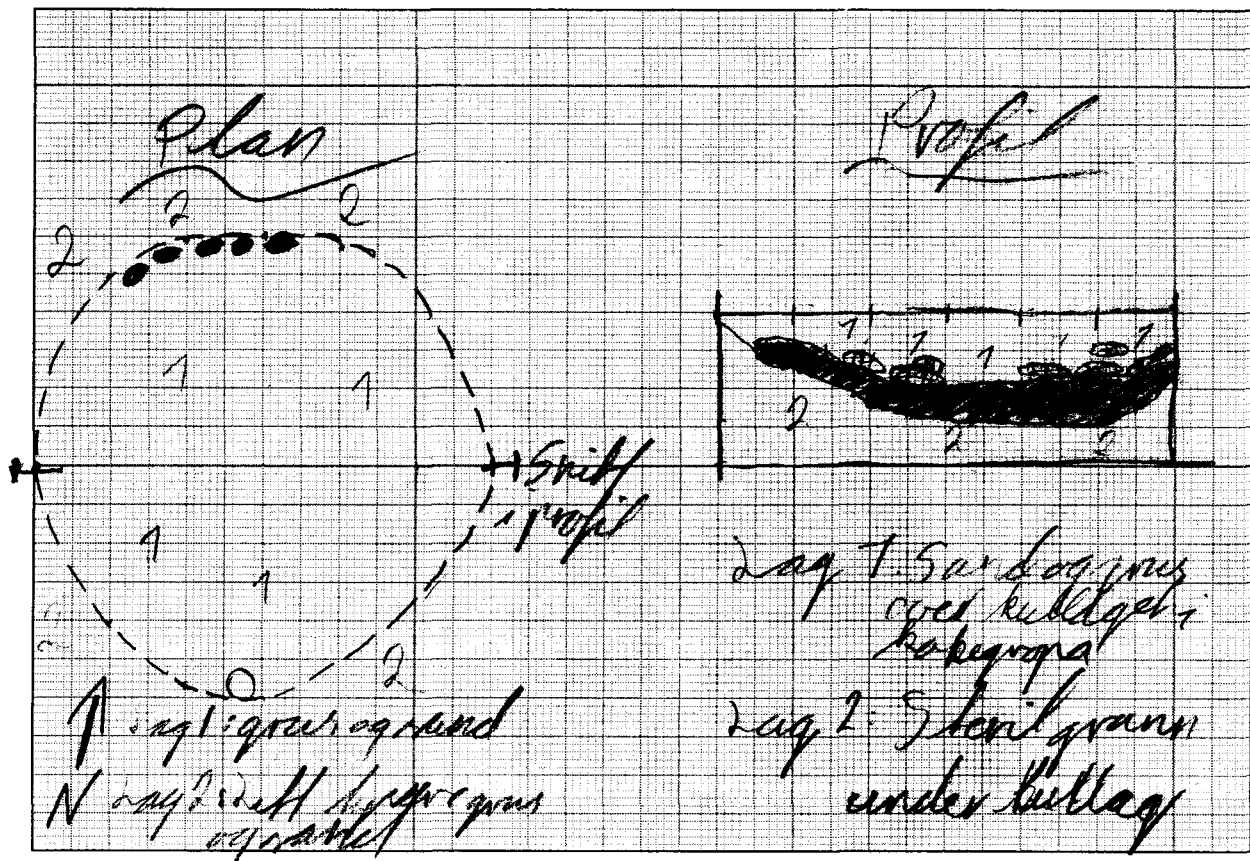 Plan
2 2
2
1 1
Snitt
i profil
1
1
2
Lag 1: grus og sand
N Lag 2: Litt grus
og sand
Profil
1 1 1 1 1
2 2 2
Lag 1: Sand og grus
over kullaget i
kokegropa
Lag 2: Steril grunn
under kullag